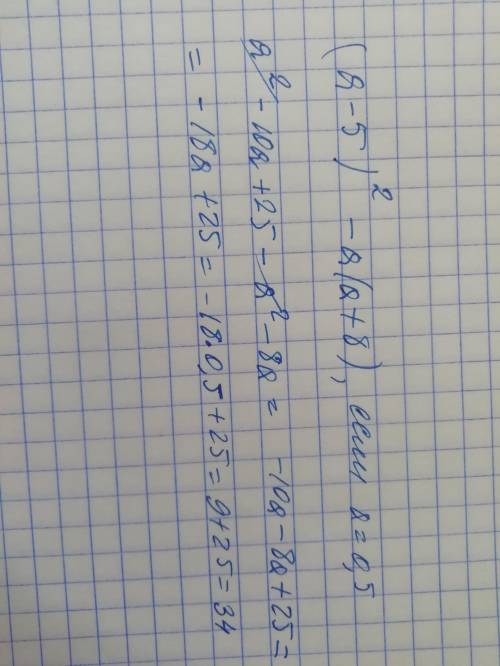 (a-5)² - a(a+8), если a=0,5
a² - 10a + 25 - a² - 8a = -10a - 8a + 25 =
= -18a + 25 = -18·0,5 + 25 = 9+25 = 34